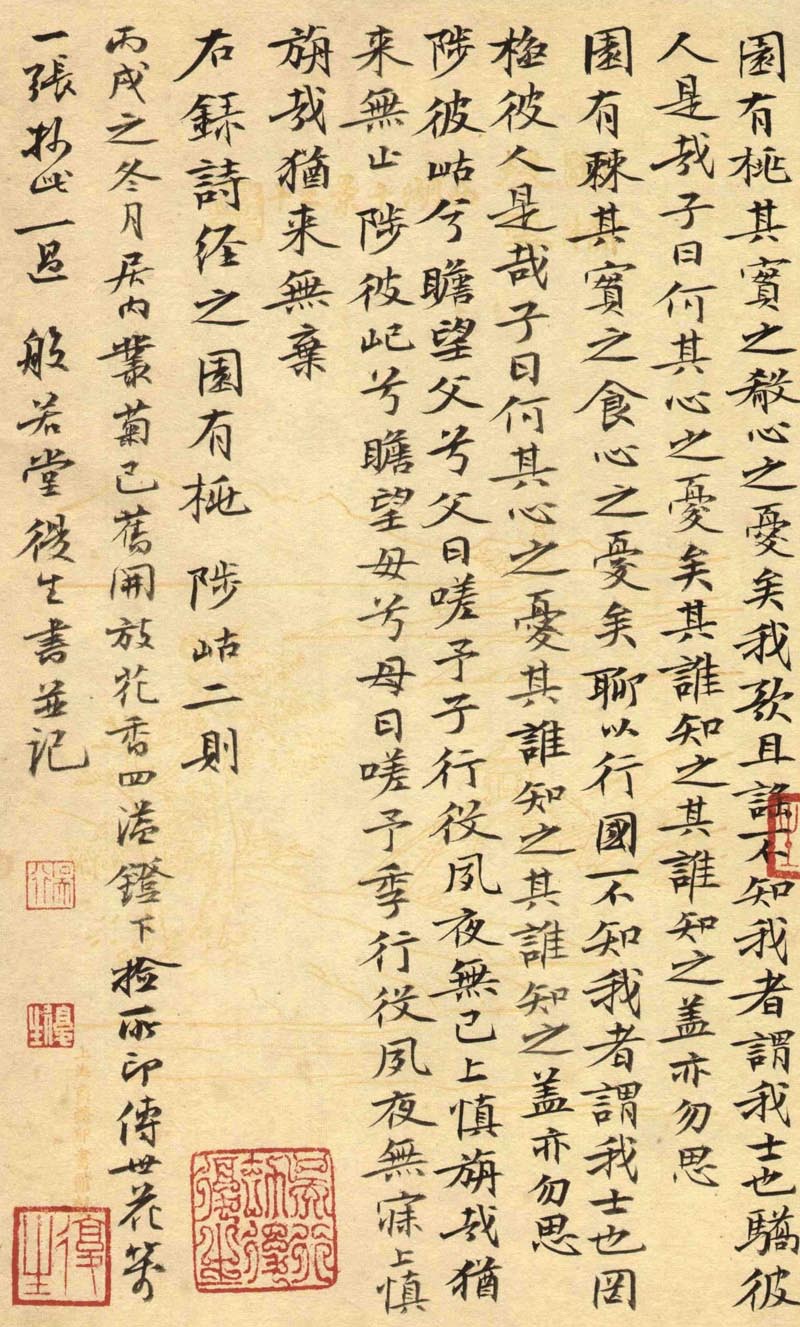 園有桃其實之殽心之憂矣我歌且謠不知我者謂我士也驕彼
人是哉子曰何其心之憂矣其誰知之其誰知之蓋亦勿思
園有棘其實之食心之憂矣聊以行國不知我者謂我士也罔
極彼人是哉子曰何其心之憂其誰知之其誰知之蓋亦勿思
陟彼岵兮瞻望父兮父曰嗟予子行役夙夜無已上慎旃哉猶
来無止陟彼屺兮瞻望母兮母曰嗟予季行役夙夜無寐上慎
旃哉猶来無棄
右錄詩経之園有桃 陟岵二則
丙戌之冬月居内叢菊已舊開放花香四溢鐙下撿所印傳世花箋
一張抄此一過 般若堂後生書並記